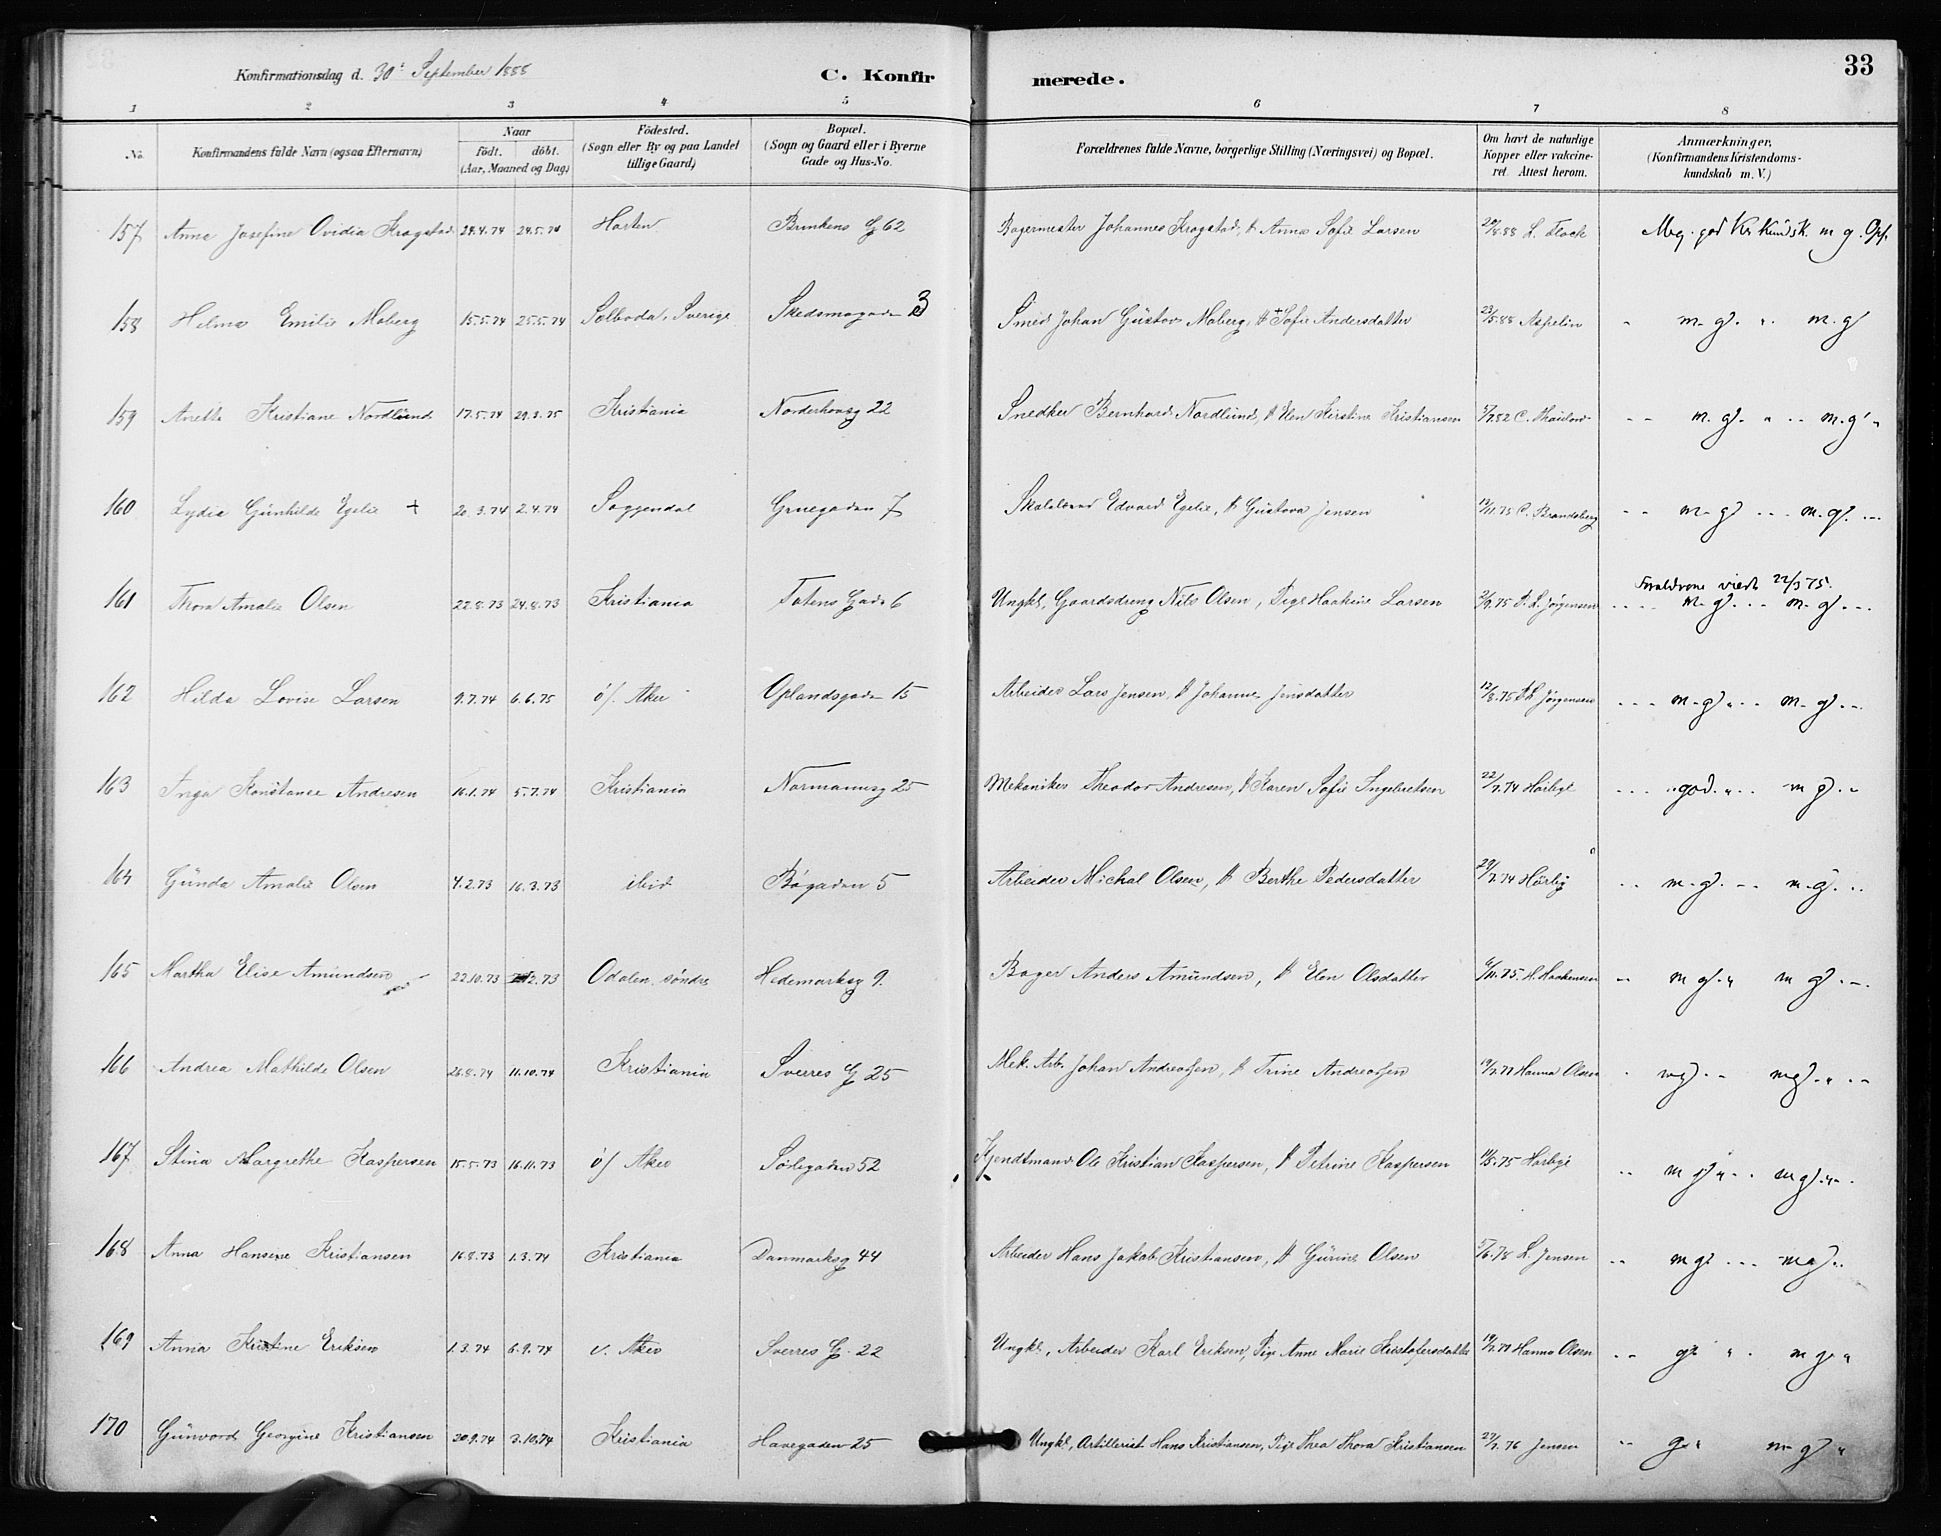 Konfirmationsdag d. 30' September 1888 C. Konfirmerede. 33
1 2 3 4 5 6 7 8
No. Konfirmandens fulde Navn (ogsaa Efternavn) Naar født. døbt. (Aar, Maaned og Dag) Födested. (Sogn eller By og paa Landet tillige Gaard) Bopæl. (Sogn og Gaard eller i Byerne Gade og Hus-No. Forældrenes fulde Navne, borgerlige Stilling (Næringsvei) og Bopæl. Om havt de naturlige Kopper eller vakcineret. Attest herom. Anmærkninger. (Konfirmandens Kristendomskundskab m. V.)
157 Anna Josefine Ovidia Krogstad 24.4.74 24.5.74 Horten Brinkens G 62 Bagermester Johannes Krogstad, & Anna Sofie Larsen 20/8.88 L. Flock Meg. god Kr Kundsk. m g. Opf.
158 Helma Emilie Moberg 15.5.74 25.5.74 Selboda, Sverige Skedsmogaden 3 Smed Johan Gustav Moberg, & + Sofie Andersdatter 23/5.88 Aspelin m. g. m. g
159 Anette Kristiane Nordlund 17.5.74 29.3.75 Kristiania Norderhovsg 22 Snedker Bernhard Nordlund, & Elen Kirstine Kristiansen C. Thaulow m. g. m. g
160 Lydia Gunhilde Egelie + 20.3.74 2.4.74 Soggendal Gruegaden 7 Edvard Egelie, & Gustava Jensen 13/11.75 C. Brandsberg m. g m. g.
161 Thora Amalie Olsen 22.8.73 24.8.73 Kristiania Totens Gade 6 Ungkl, Gaardsdreng Nils Olsen, Pige Haakine Larsen P. L. Jørgensen Foraldrene viede 22/3 75. m. g. m. g.
162 Hilda Lovise Larsen 9.7.74 6.6.75 ö/. Aker Oplandsgaden 15 Arbeider Lars Jensen, & Johanne Jensdatter 12/8.75 P.L Jørgensen m. g. m. g.
163 Inga Konstance Andresen 16.1.74 5.7.74 Kristiania Normannsg 25 Mekaniker Theodor Andresen, & Karen Sofie Ingebretsen 22/7.74 Hörbye god. m g.
164 Gunda Amalie Olsen 4.2.73 16.3.73 ibid Bøgaden 5 Arbeider Michal Olsen, & Berthe Pedersdatter 29/7.74 Hörbye m. g. m. g.
165 Martha Elise Amundsen 22.10.73 .12.73 Odalen. søndre Hedemarksg 9. Bager Anders Amundsen, & Elen Olsdatter 6/11.75. H. Haakensen m g. m g.
166 Andrea Mathilde Olsen 26.8.74 11.10.74 Kristiania Sverres G 25 Mek. Arb. Johan Andreassen, & Trine Andreassen Hanna Olsen mg. mg.
167 Stina Margrethe Kaspersen 15.5.73 16.11.73 ö/ Aker Sorligaden 52 Kjendtmand Ole Kristian Kaspersen, & Petrine Kaspersen Hörbye m g m g.
168 Anna Hansine Kristiansen 16.8.73 1.3.74 Kristiania Danmarksg 44 Arbeider Hans Jakob Kristiansen, & Gurine Olsen 5/6.78 L. Jensen m g. m g.
169 Anna Kristine Eriksen 1.3.74 6.9.74 v. Aker Sverres G. 22 Ungkl, Arbeider Karl Eriksen, Pige Anne Marie Kristofersdatter Hanna Olsen g. m g.
170 Gunvord Georgine Kristiansen 20.9.74 3.10.74 Kristiania Havegaden 25 Ungkl, Artillerist Hans Kristiansen, Pige Thea Thora Kristiansen 27/7.76 Jensen g. m g